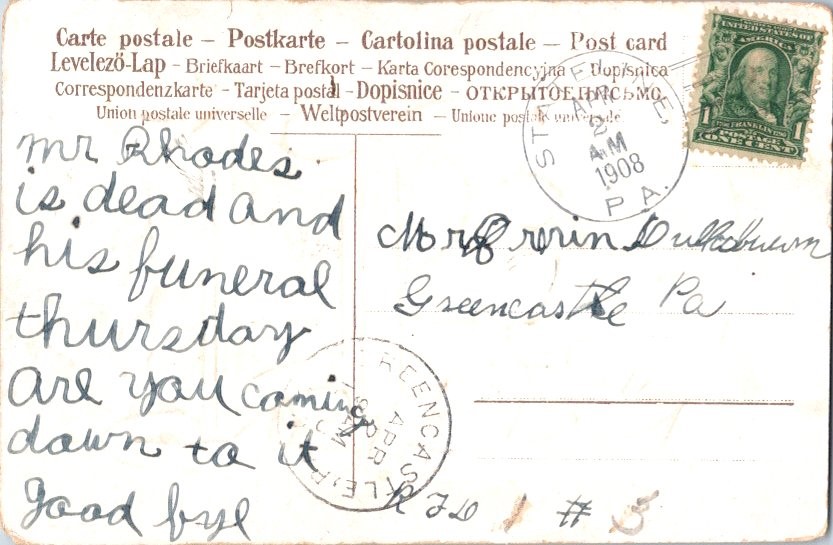 Carte postale – Postkarte – Cartolina postale – Post card
Levelező-Lap – Briefkaart – Brefkort – Karta Corespondencyjna – Dopisnica
Correspondenzkarte – Tarjeta postal – Dopisnice – ОТКРЫТОЕ ПИСЬМО.
Union postale universelle – Weltpostverein – Unione postale universale
UNITED STATES OF
AMERICA
FRANKLIN
1 POSTAGE 1
ONE CENT
STATE LINE,
APR
2
A.M
1908
PA.
mr Rhodes
is dead and
his funeral
thursday
are you coming
down to it
good bye
Mr
Greencastle Pa
GREENCASTLE
APR
AM
RFD # 3